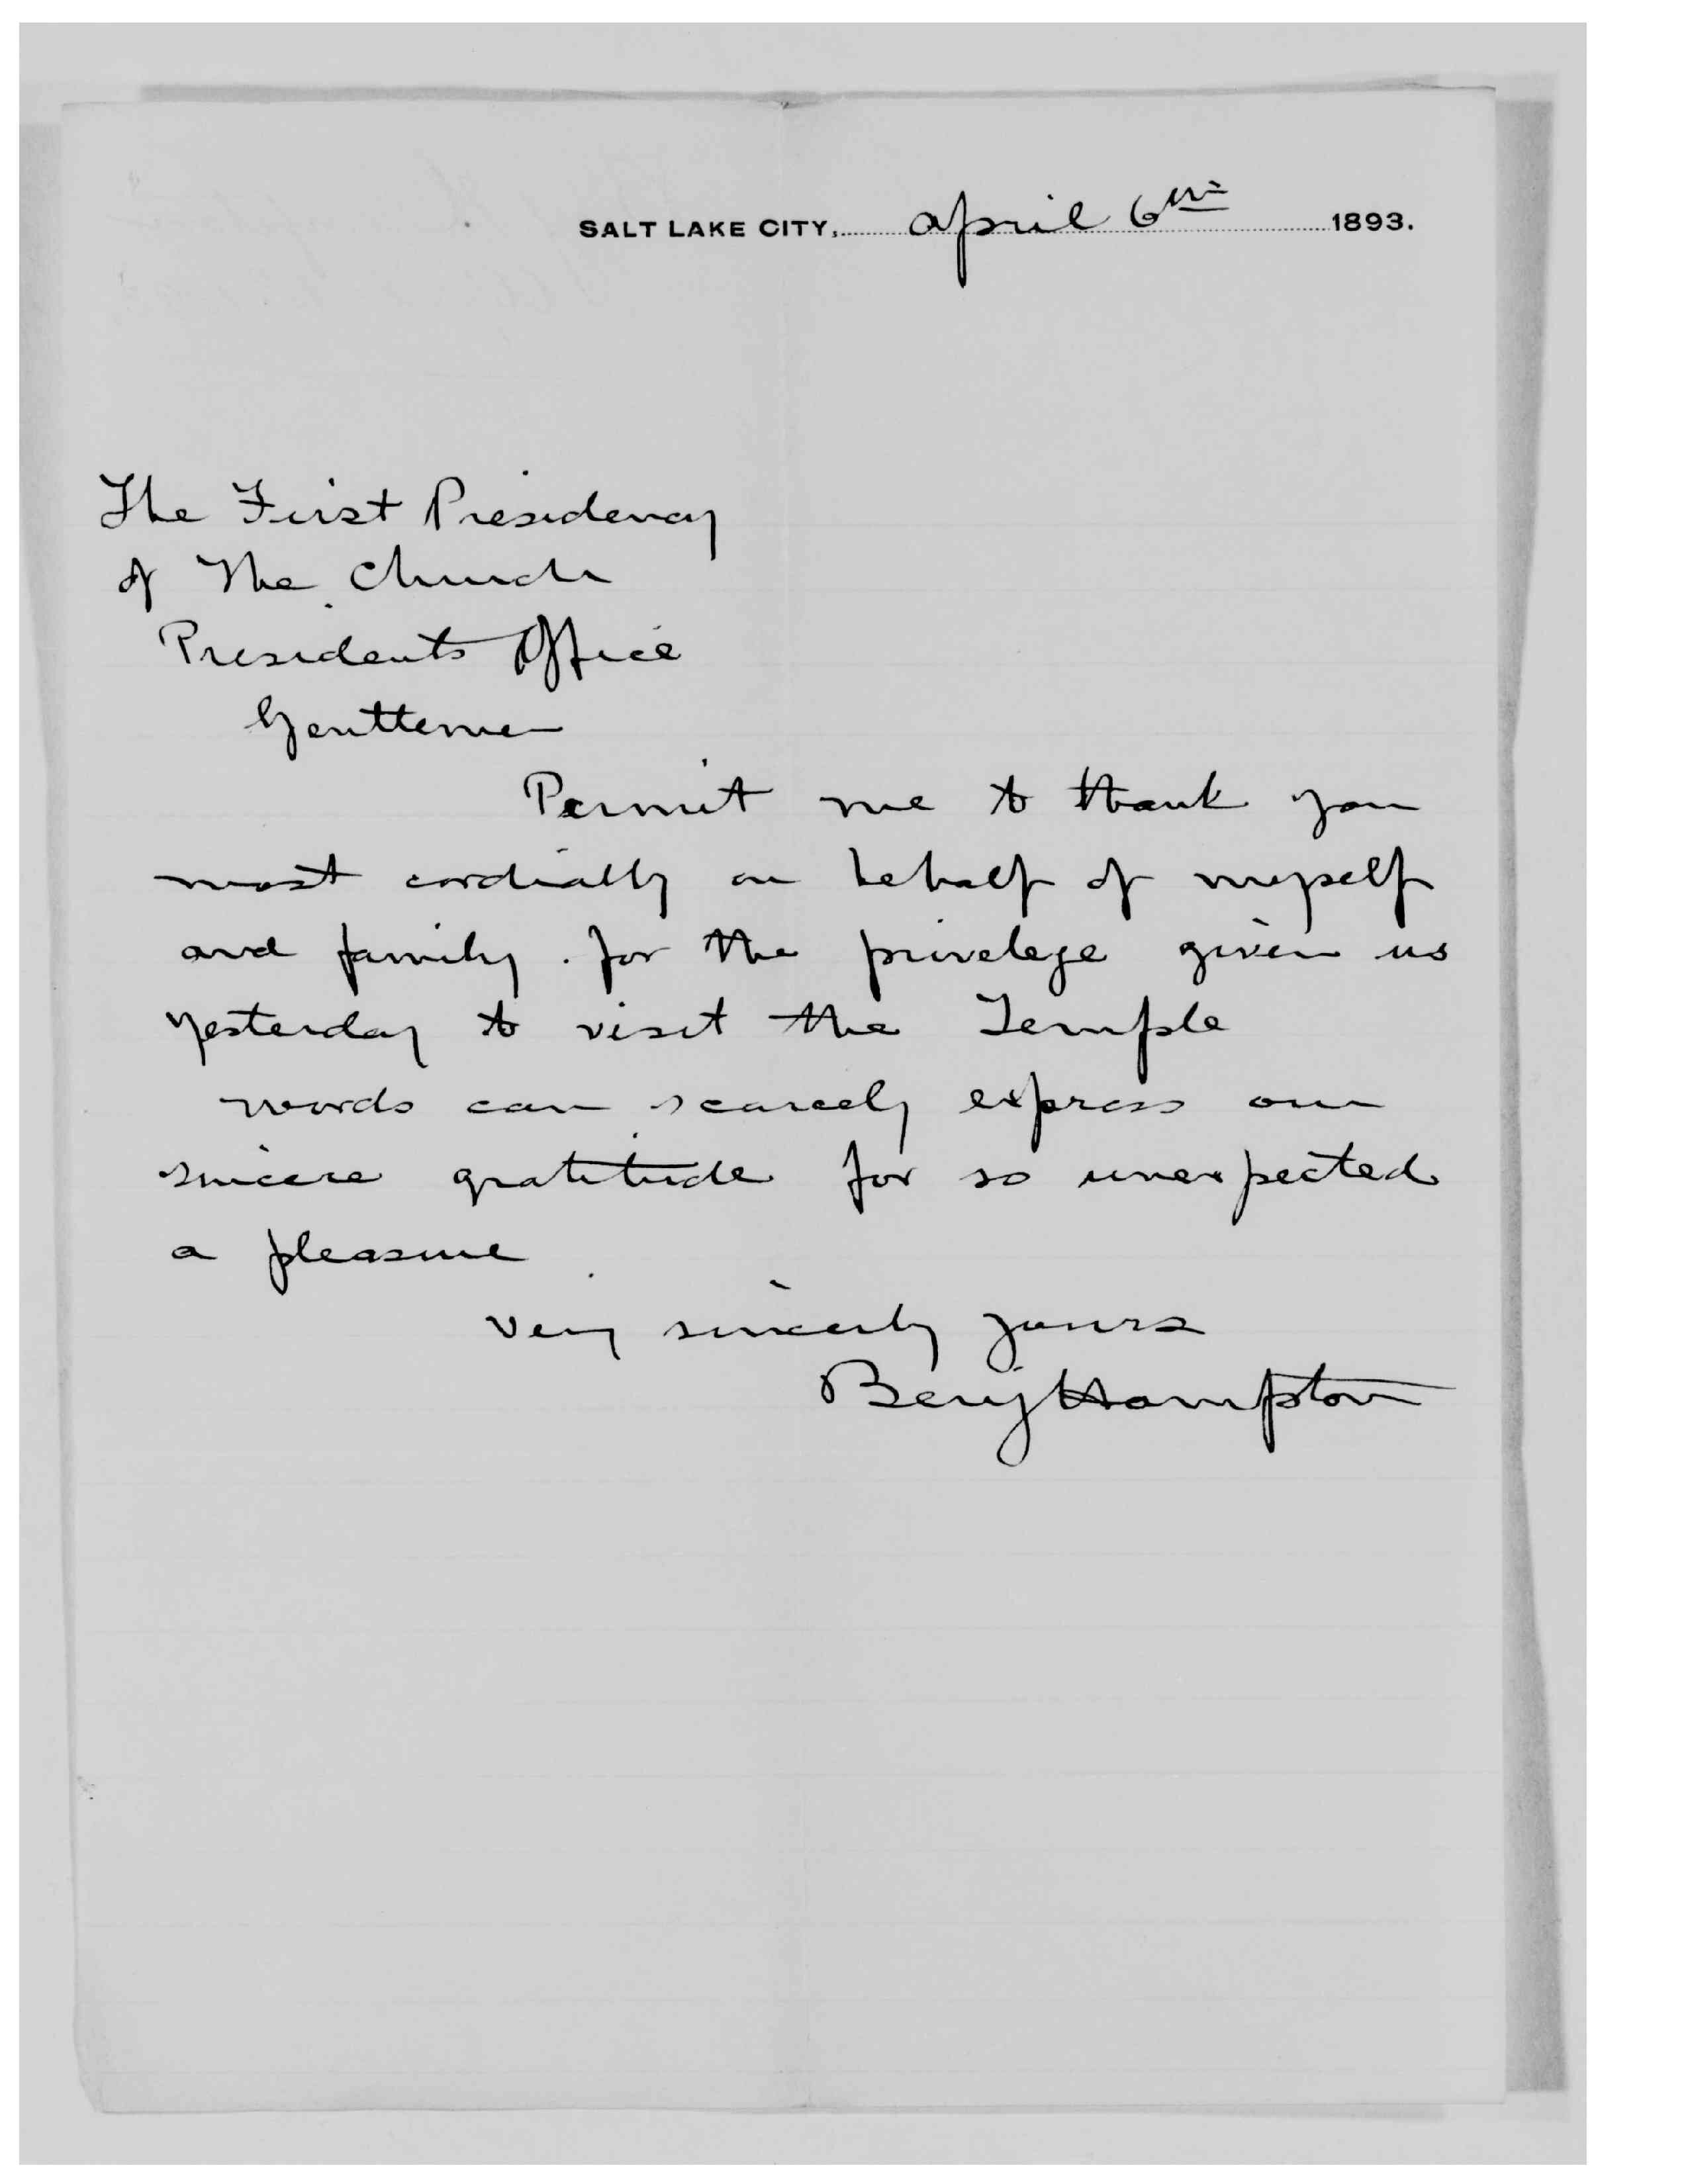 SALT LAKE CITY, april 6th 1893.
The First Presidency
of The Church
Presidents Office
Gentlemen
Permit me to thank you
most cordially on behalf of myself
and family. for the privelege given us
yesterday to visit the Temple
words can scarcely express our
sincere gratitude for so unexpected
a pleasure
Very sincerly yours
Benj Hampton